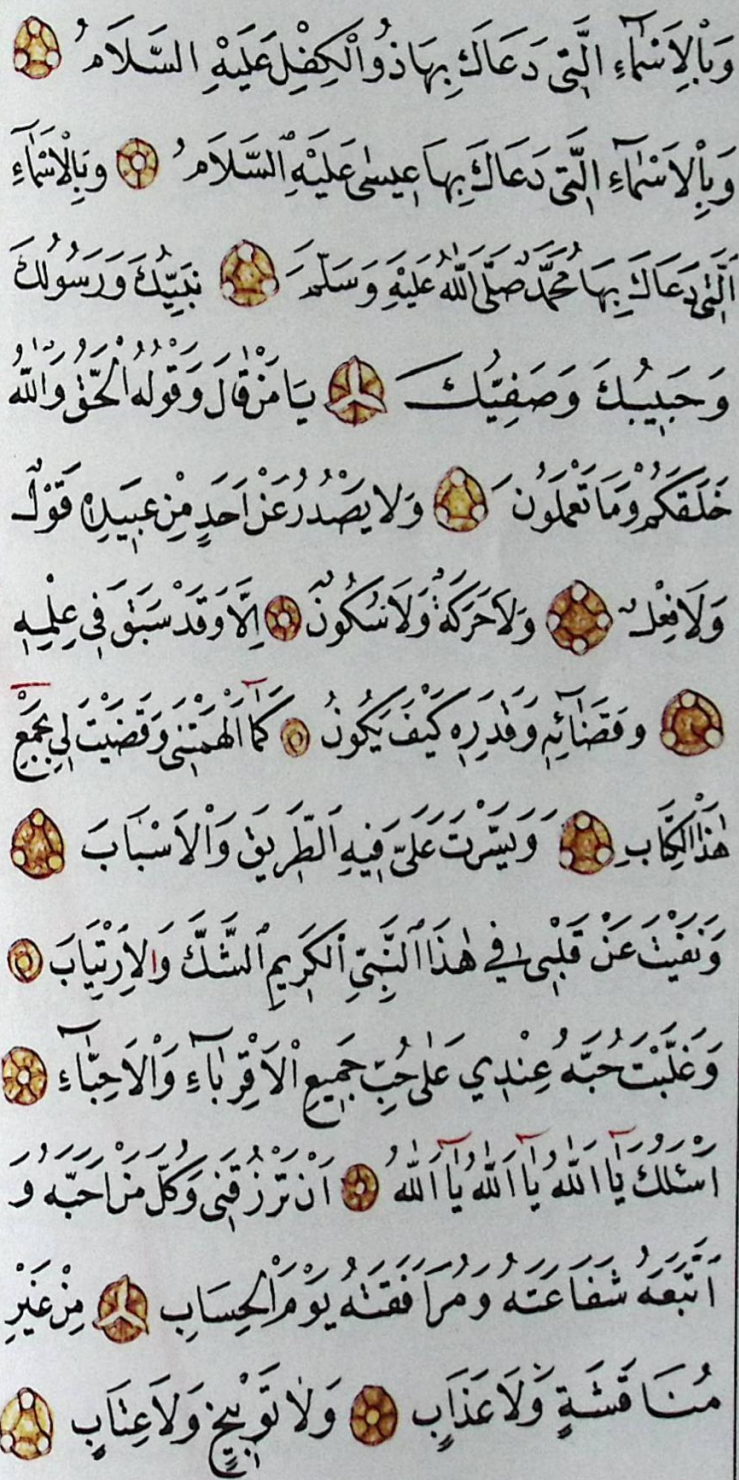 وَبِالْاَسْمَٓاءِ الَّتِى دَعَاكَ بِهَا ذُو الْكِفْلِ عَلَيْهِ السَّلَامُ
وَبِالْاَسْمَٓاءِ الَّتِى دَعَاكَ بِهَا عِيسٰى عَلَيْهِ السَّلَامُ وَبِالْاَسْمَٓاءِ
الَّتِى دَعَاكَ بِهَا مُحَمَّدٌ صَلَّى اللّٰهُ عَلَيْهِ وَسَلَّمَ نَبِيُّكَ وَرَسُولُكَ
وَحَبِيبُكَ وَصَفِيُّكَ يَا مَنْ قَالَ وَقَوْلُهُ الْحَقُّ وَاللّٰهُ
خَلَقَكُمْ وَمَا تَعْمَلُونَ وَلَا يَصْدُرُ عَنْ اَحَدٍ مِنْ عَبِيدِهِ قَوْلٌ
وَلَا فِعْلٌ وَلَا حَرَكَةٌ وَلَا سُكُونٌ اِلَّا وَقَدْ سَبَقَ فِى عِلْمِهِ
وَقَضَٓائِهِ وَقَدَرِهِ كَيْفَ يَكُونُ كَمَٓا اَلْهَمْتَنِى وَقَضَيْتَ لِى بِجَمْعِ
هٰذَا الْكِتَابِ وَيَسَّرْتَ عَلَىَّ فِيهِ الطَّرِيقَ وَالْاَسْبَابَ
وَنَفَيْتَ عَنْ قَلْبِى فِى هٰذَا النَّبِىِّ الْكَرِيمِ الشَّكَّ وَالْاِرْتِيَابَ
وَغَلَّبْتَ حُبَّهُ عِنْدِي عَلٰى حُبِّ جَمِيعِ الْاَقْرِبَٓاءِ وَالْاَحِبَّٓاءِ
اَسْئَلُكَ يَٓا اَللّٰهُ يَٓا اَللّٰهُ يَٓا اَللّٰهُ اَنْ تَرْزُقَنِى وَكُلَّ مَنْ اَحَبَّهُ وَ
اتَّبَعَهُ شَفَاعَتَهُ وَمُرَافَقَتَهُ يَوْمَ الْحِسَابِ مِنْ غَيْرِ
مُنَاقَشَةٍ وَلَا عَذَابٍ وَلَا تَوْبِيخٍ وَلَا عِتَابٍ